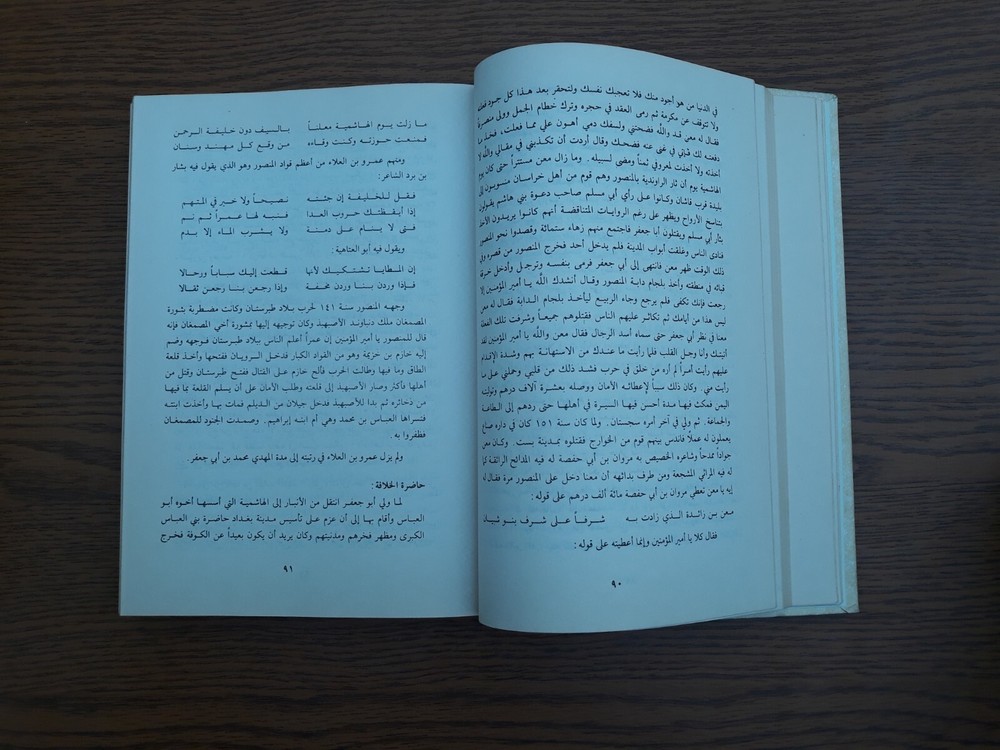 في الدنيا من هو أجود منك فلا تعجبك نفسك ولتحقر بعد هذا كل جود فعلته
ولا تتوقف عن مكرمة ثم رمى العقد في حجره وترك خطام الجمل وولى منصرفاً
فقال له معن قد والله فضحتني ولسفك دمي أهون علي مما فعلت، فخذ ما
دفعته لك فإني في غنى عنه فضحك وقال أردت أن تكذبني في مقالي والله لا
أخذته ولا أخذت لمعروفي ثمناً ومضى لسبيله. وما زال معن مستتراً حتى كان يوم
الهاشمية يوم أن ثار الراوندية بالمنصور وهم قوم من أهل خراسان منسوبون إلى
بليدة قرب قاشان وكانوا على رأي أبي مسلم صاحب دعوة بني هاشم يقولون
بتناسخ الأرواح ويظهر على رغم الروايات المتناقضة أنهم كانوا يريدون الأخذ
بثأر أبي مسلم ويقتلون أبا جعفر فاجتمع منهم زهاء ستمائة وقصدوا نحو المنصور
فنادى الناس وغلقت أبواب المدينة فلم يدخل أحد فخرج المنصور من قصره وفي
ذلك الوقت ظهر معن فانتهى إلى أبي جعفر فرمى بنفسه وترجل وأدخل
قبائه في منطقته وأخذ بلجام دابة المنصور وقال أنشدك الله يا أمير المؤمنين إلا
رجعت فإنك تكفى فلم يرجع وجاء الربيع ليأخذ بلجام الدابة فقال له معن
ليس هذا من أيامك ثم تكاثر عليهم الناس فقتلوهم جميعاً وشرفت تلك الفعلة
معنا في نظر أبي جعفر حتى سماه أسد الرجال فقال له معن والله يا أمير المؤمنين لقد
أتيتك وأنا وجل القلب فلما رأيت ما عندك من الاستهانة بهم وشدة الإقدام
عليهم رأيت أمراً لم أره من خلق في حرب فشد ذلك من قلبي وحملني على ما
رأيت مني. وكان ذلك سبباً لإعطائه الأمان ووصله بعشرة آلاف درهم وتوليته
اليمن فمكث فيها مدة أحسن فيها السيرة في أهلها حتى ردهم إلى الطاعة
والجماعة. ثم ولي في آخر أمره سجستان. ولما كان سنة ١٥١ كان في داره صناع
يعملون له عملاً فاندس بينهم قوم من الخوارج فقتلوه بمدينة بست. وكان معن
جواداً ممدحاً وشاعره الخصيص به مروان بن أبي حفصة له فيه المدائح الرائقة كما
له فيه المراثي المشجعة ومن طرف بدائهه أن معنا دخل على المنصور مرة فقال له
إيه يا معن تعطي مروان بن أبي حفصة مائة ألف درهم على قوله:
معن بن زائدة الذي زادت به شرفاً على شرف بنو شيبان
فقال كلا يا أمير المؤمنين وإنما أعطيته على قوله:
٩٠
ما زلت يوم الهاشمية معلناً بالسيف دون خليفة الرحمن
فمنعت حوزته وكنت وقاءه من وقع كل مهند وسنان
ومنهم عمرو بن العلاء من أعظم قواد المنصور وهو الذي يقول فيه بشار
بن برد الشاعر:
فقل للخليفة إن جئته نصيحاً ولا خير في المتهم
إذا أيقظتك حروب العدا فنبه لها عمراً ثم نم
فتى لا ينام على دمنة ولا يشرب الماء إلا بدم
ويقول فيه أبو العتاهية:
إن المطايا تشتكيك لأنها قطعت إليك سباباً ورحالا
فإذا وردن بنا وردن مخفة وإذا رجعن بنا رجعن ثقالا
وجهه المنصور سنة ١٤١ لحرب بلاد طبرستان وكانت مضطربة بثورة
المصمغان ملك دنباوند الأصبهذ وكان توجيهه إليها بمشورة أخي المصمغان فإنه
قال للمنصور يا أمير المؤمنين إن عمراً أعلم الناس ببلاد طبرستان فوجهه وضم
إليه خازم بن خزيمة وهو من القواد الكبار فدخل الرويان ففتحها وأخذ قلعة
الطاق وما فيها وطالت الحرب فألح خازم على القتال ففتح طبرستان وقتل من
أهلها فأكثر وصار الأصبهذ إلى قلعته وطلب الأمان على أن يسلم القلعة بما فيها
من ذخائره ثم بدا للأصبهذ فدخل جيلان من الديلم فمات بها وأخذت ابنته
فتسراها العباس بن محمد وهي أم ابنه إبراهيم. وصمدت الجنود للمصمغان
فظفروا به.
ولم يزل عمرو بن العلاء في رتبته إلى مدة المهدي محمد بن أبي جعفر.
حاضرة الخلافة:
لما ولي أبو جعفر انتقل من الأنبار إلى الهاشمية التي أسسها أخوه أبو
العباس وأقام بها إلى أن عزم على تأسيس مدينة بغداد حاضرة بني العباس
الكبرى ومظهر فخرهم ومدنيتهم وكان يريد أن يكون بعيداً عن الكوفة فخرج
٩١